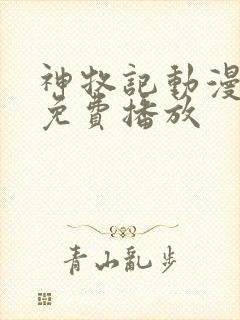 神牧記動漫
免費播放
青山亂步